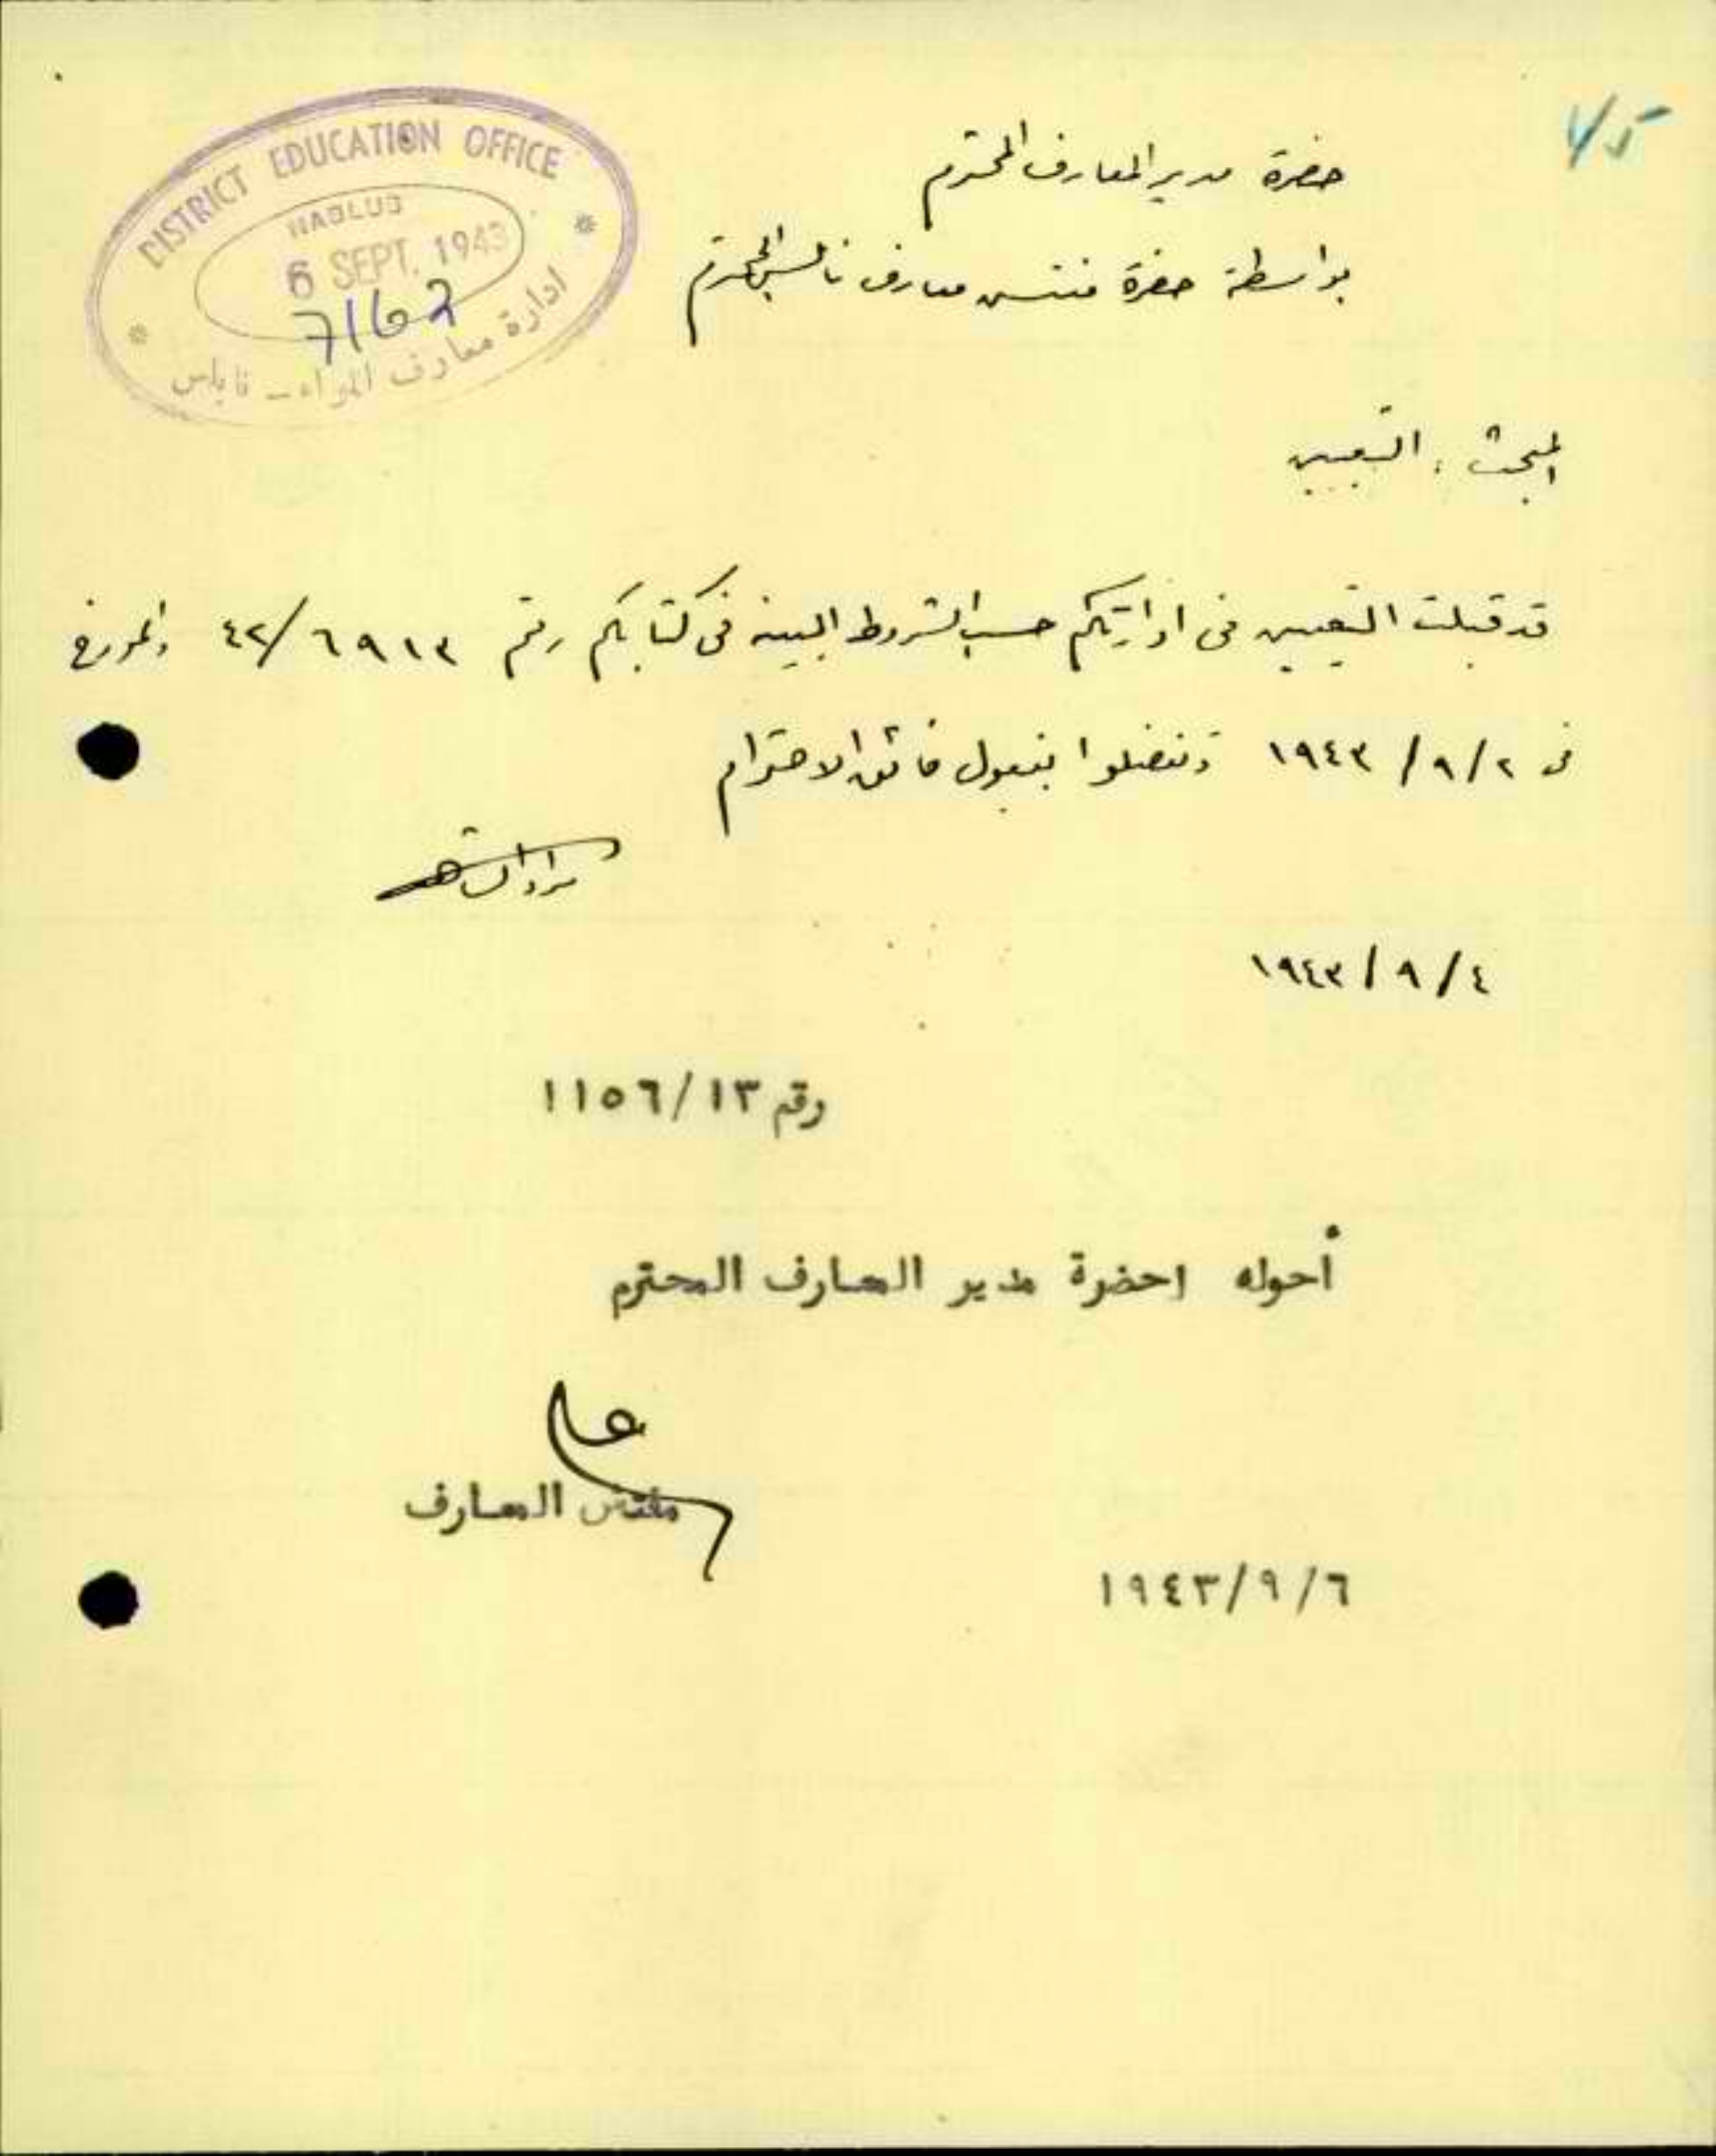 DISTRICT EDUCATION OFFICE
NABLUS
6 SEPT. 1943
7162
ادارة معارف اللواء - نابلس
حضرة مدير المعارف المحترم
بواسطة حضرة مفتش معارف نابلس المحترم
المبحث : التعيين
قد قبلت التعيين في ادارتكم حسب الشروط المبينه في كتابكم رقم ٦٩١٣/٤٢ والمؤرخ
في ٢/٩/١٩٤٣ وتفضلوا بقبول فائق الاحترام
٤/٩/١٩٤٣
رقم ١١٥٦/١٣
أحوله لحضرة مدير المعارف المحترم
مفتش المعارف
٦/٩/١٩٤٣